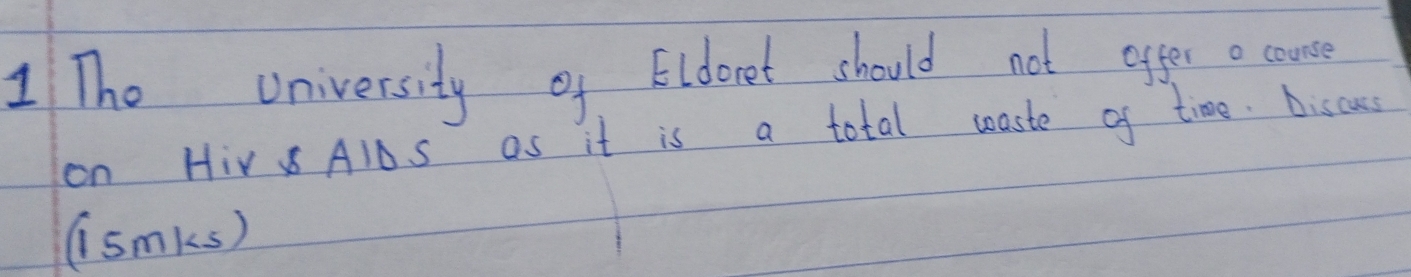 1 The University of Eldoret should not offer a course
on Hiv & AIDS as it is a total waste of time. Discuss
(15mks)